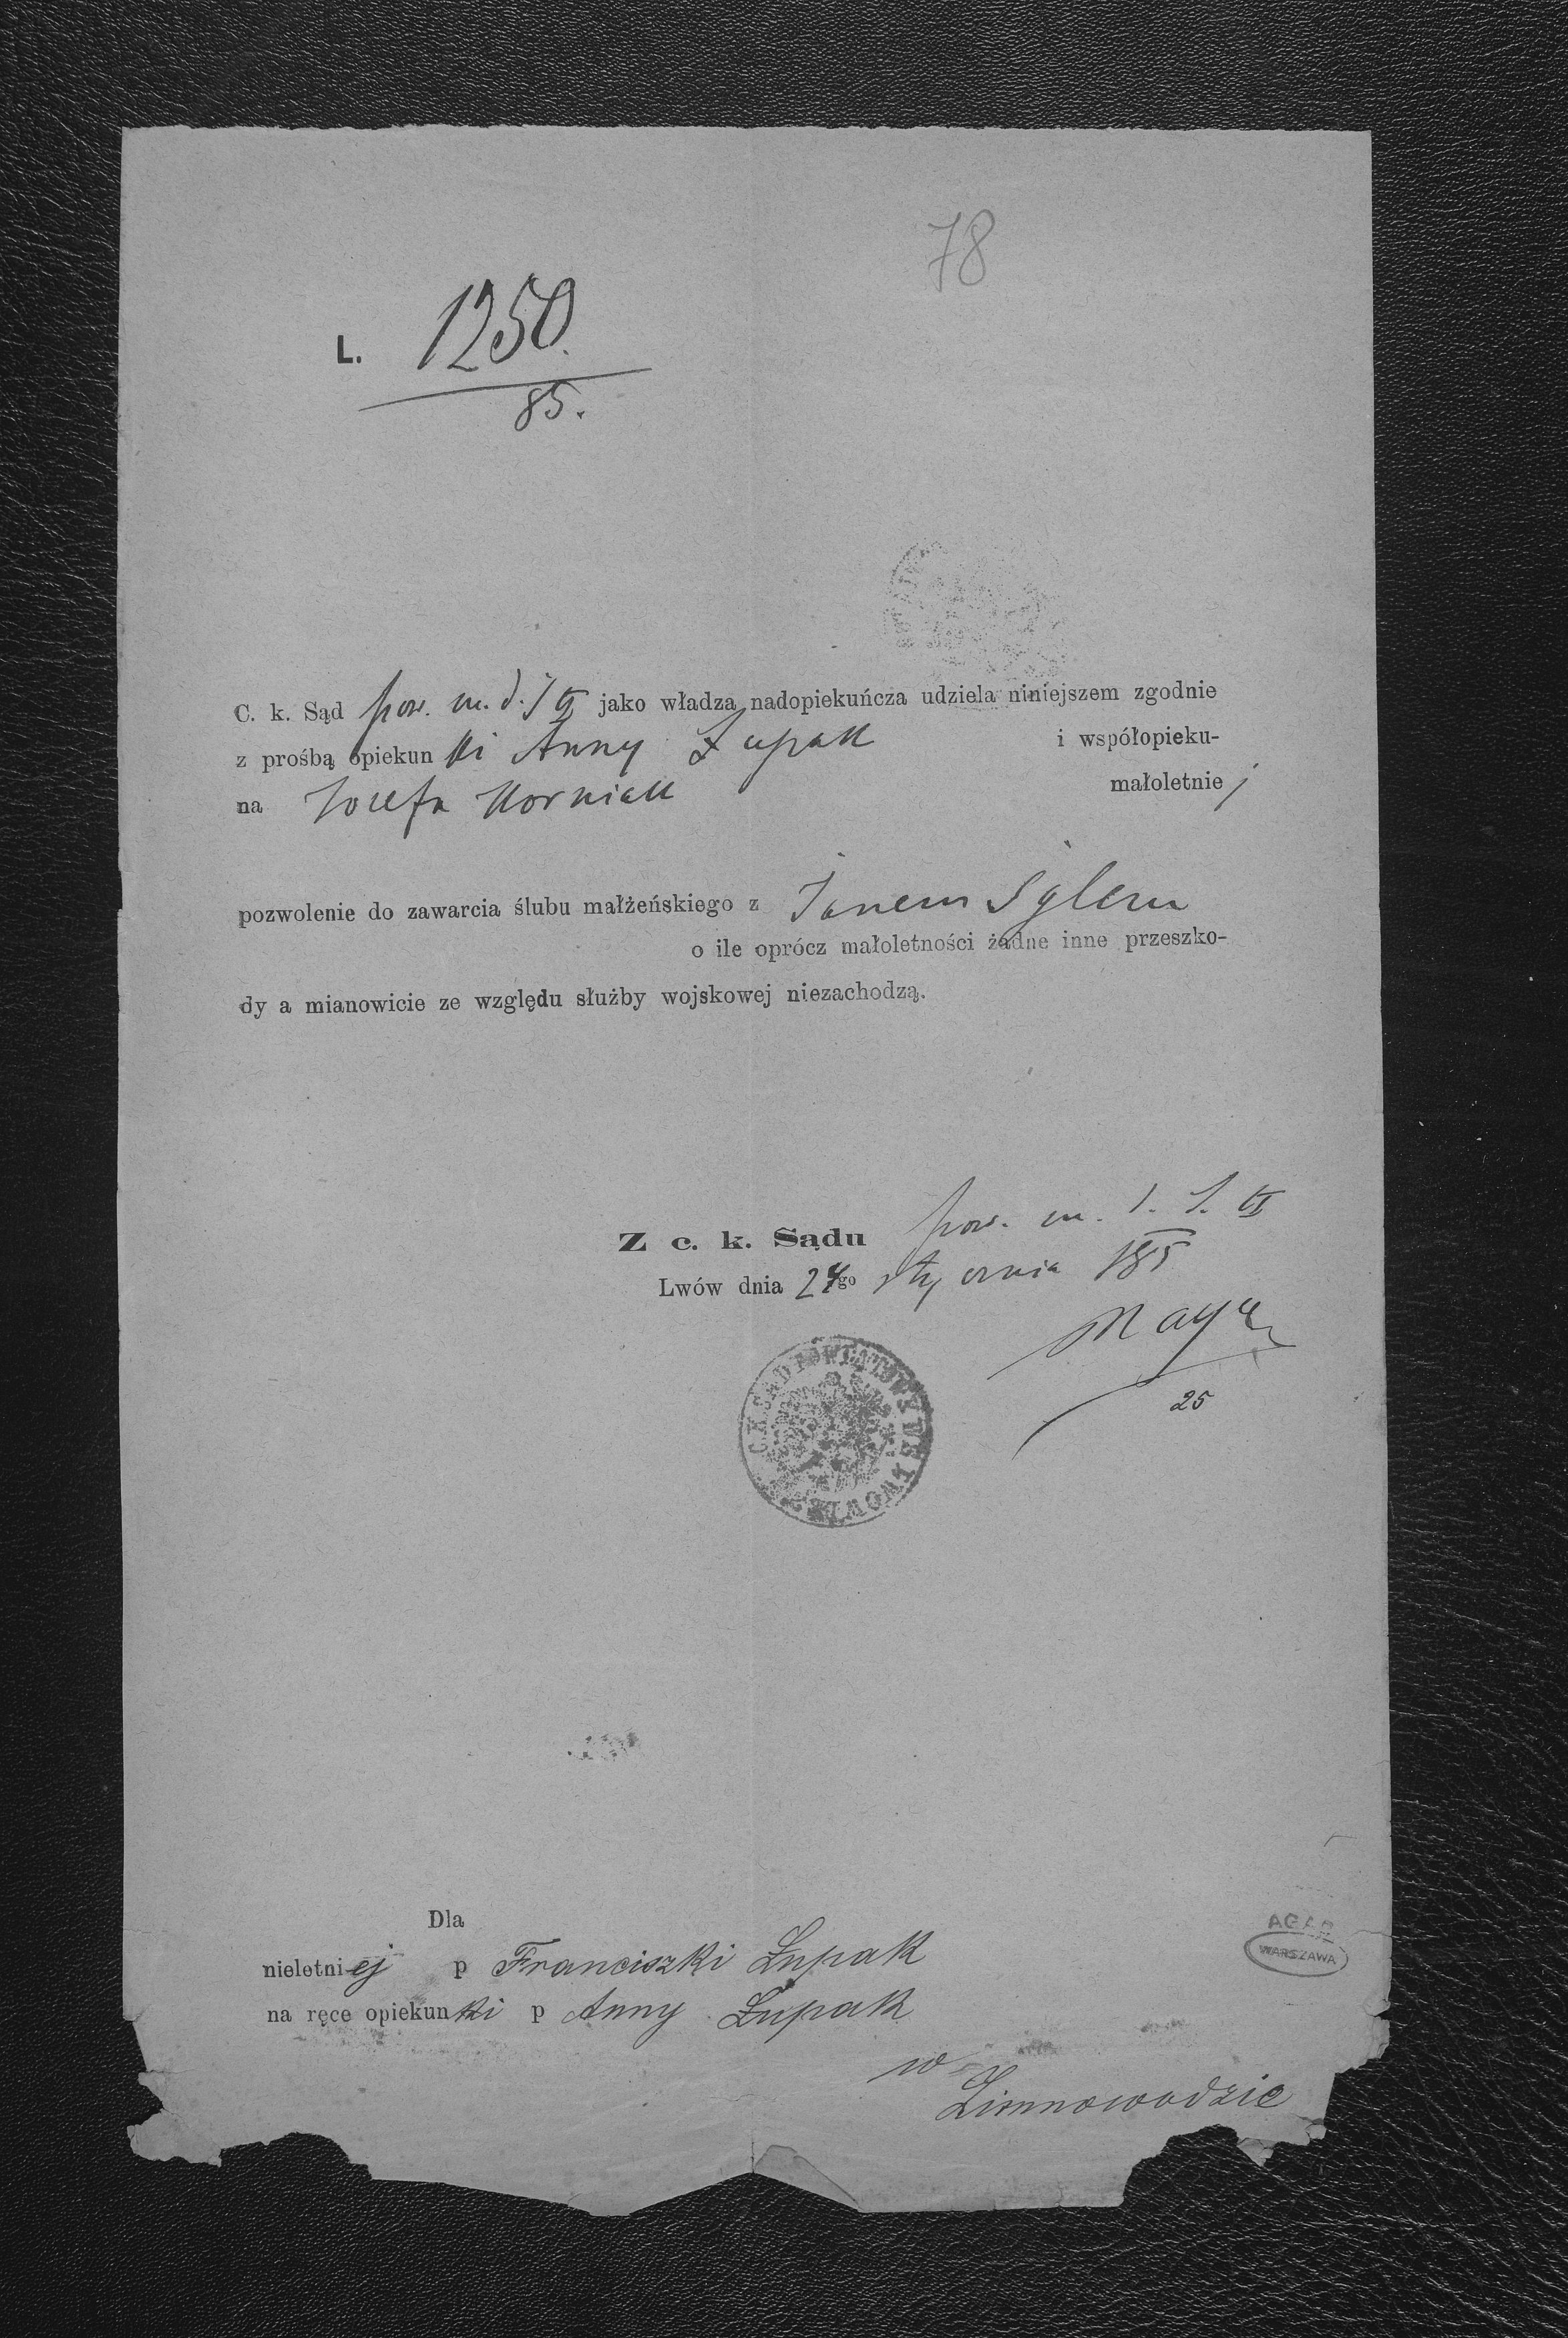 78
L. 1250.
85.
C. k. Sąd pow. m. d. S II jako władza nadopiekuńcza udziela niniejszem zgodnie
z prośbą opiekunki Anny Łupak i współopieku-
na Józefa Korniak małoletniej
pozwolenie do zawarcia ślubu małżeńskiego z Janem
o ile oprócz małoletności żadne inne przeszko-
dy a mianowicie ze względu służby wojskowej niezachodzą.
Z c. k. Sądu pow. m. d. S. II
Lwów dnia 24go stycznia 885
25
C.K. SĄD POWIATOWY WE LWOWIE
Dla
nieletniej p Franciszki Łupak
na ręce opiekunki p Anny Łupak
w
Zimnowodzie
AGAD
WARSZAWA